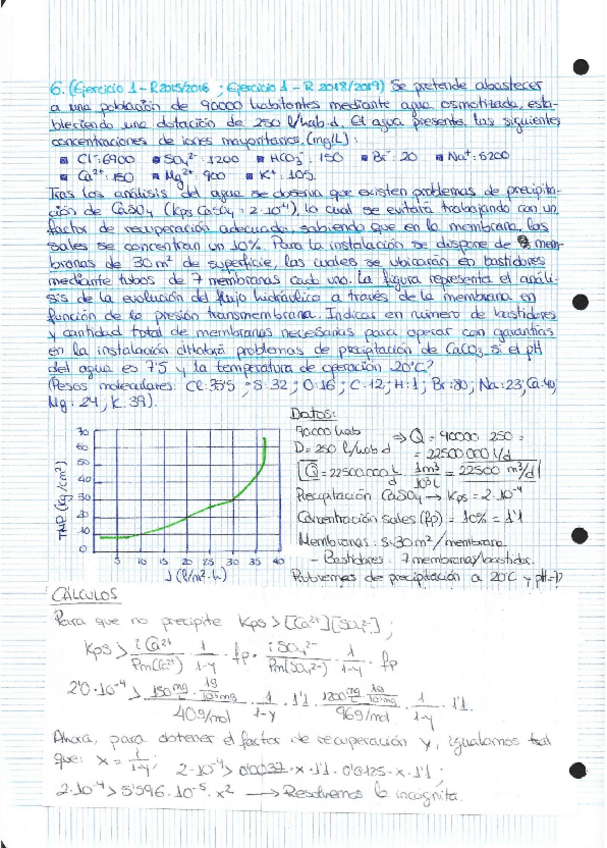 6. (Ejercicio 1 - R2015/2016 ; Ejercicio 1 - R 2018/2019) Se pretende abastecer
a una población de 90000 habitantes mediante agua osmotizada, esta-
bleciendo una dotación de 250 l/hab.d. El agua presenta las siguientes
concentraciones de iones mayoritarios (mg/L):
Cl⁻: 6900 SO₄²⁻: 1200 HCO₃⁻: 150 Br⁻: 20 Na⁺: 5200
Ca²⁺: 150 Mg²⁺: 900 K⁺: 105.
Tras los análisis del agua se observa que existen problemas de precipita-
ción de CaSO₄ (Kps CaSO₄ = 2·10⁻⁴), lo cual se evitará trabajando con un
factor de recuperación adecuado, sabiendo que en la membrana, las
sales se concentran un 10%. Para la instalación se dispone de mem-
branas de 30 m² de superficie, las cuales se ubicarán en bastidores
mediante tubos de 7 membranas cada uno. La figura representa el análi-
sis de la evolución del flujo hidráulico a través de la membrana en
función de la presión transmembrana. Indicar en número de bastidores
y cantidad total de membranas necesarias para operar con garantías
en la instalación problemas de precipitación de CaCO₃ si el pH
del agua es 7'5 y la temperatura de operación 20°C?
(Pesos moleculares: Cl: 35'5 ; S: 32 ; O: 16 ; C: 12 ; H: 1 ; Br: 80 ; Na: 23 ; Ca: 40
Mg: 24 ; K: 39).
Datos:
90000 hab
D = 250 l/hab d
⇒ Q = 90000 · 250 =
= 22500 000 l/d
Q = 22500.000 L/d · 1m³/10³L = 22500 m³/d
Precipitación CaSO₄ → Kps = 2·10⁻⁴
Concentración sales (fp) = 10% = 1'1
Membranas: S: 30 m²/membrana
- Bastidores: 7 membranas/bastidor.
Problemas de precipitación a 20°C y pH
TMP (kg/cm²)
70
60
50
40
30
20
10
0
5 10 15 20 25 30 35 40
J (l/m²·h)
CÁLCULOS
Para que no precipite Kps > [Ca²⁺][SO₄²⁻] ;
Kps > i Ca²⁺/Pm(Ca²⁺) · 1/1-y · fp · i SO₄²⁻/Pm(SO₄²⁻) · 1/1-y · fp
2'0·10⁻⁴ > 150 mg · 1g/10³mg / 40 g/mol · 1/1-y · 1'1 · 1200 mg · 1g/10³mg / 96 g/mol · 1/1-y · 1'1.
Ahora, para obtener el factor de recuperación y, igualamos tal
que: x = 1/1-y ; 2·10⁻⁴ > 0'0037 · x · 1'1 · 0'0125 · x · 1'1 ;
2·10⁻⁴ > 5'596·10⁻⁵ · x² → Resolvemos la incógnita.